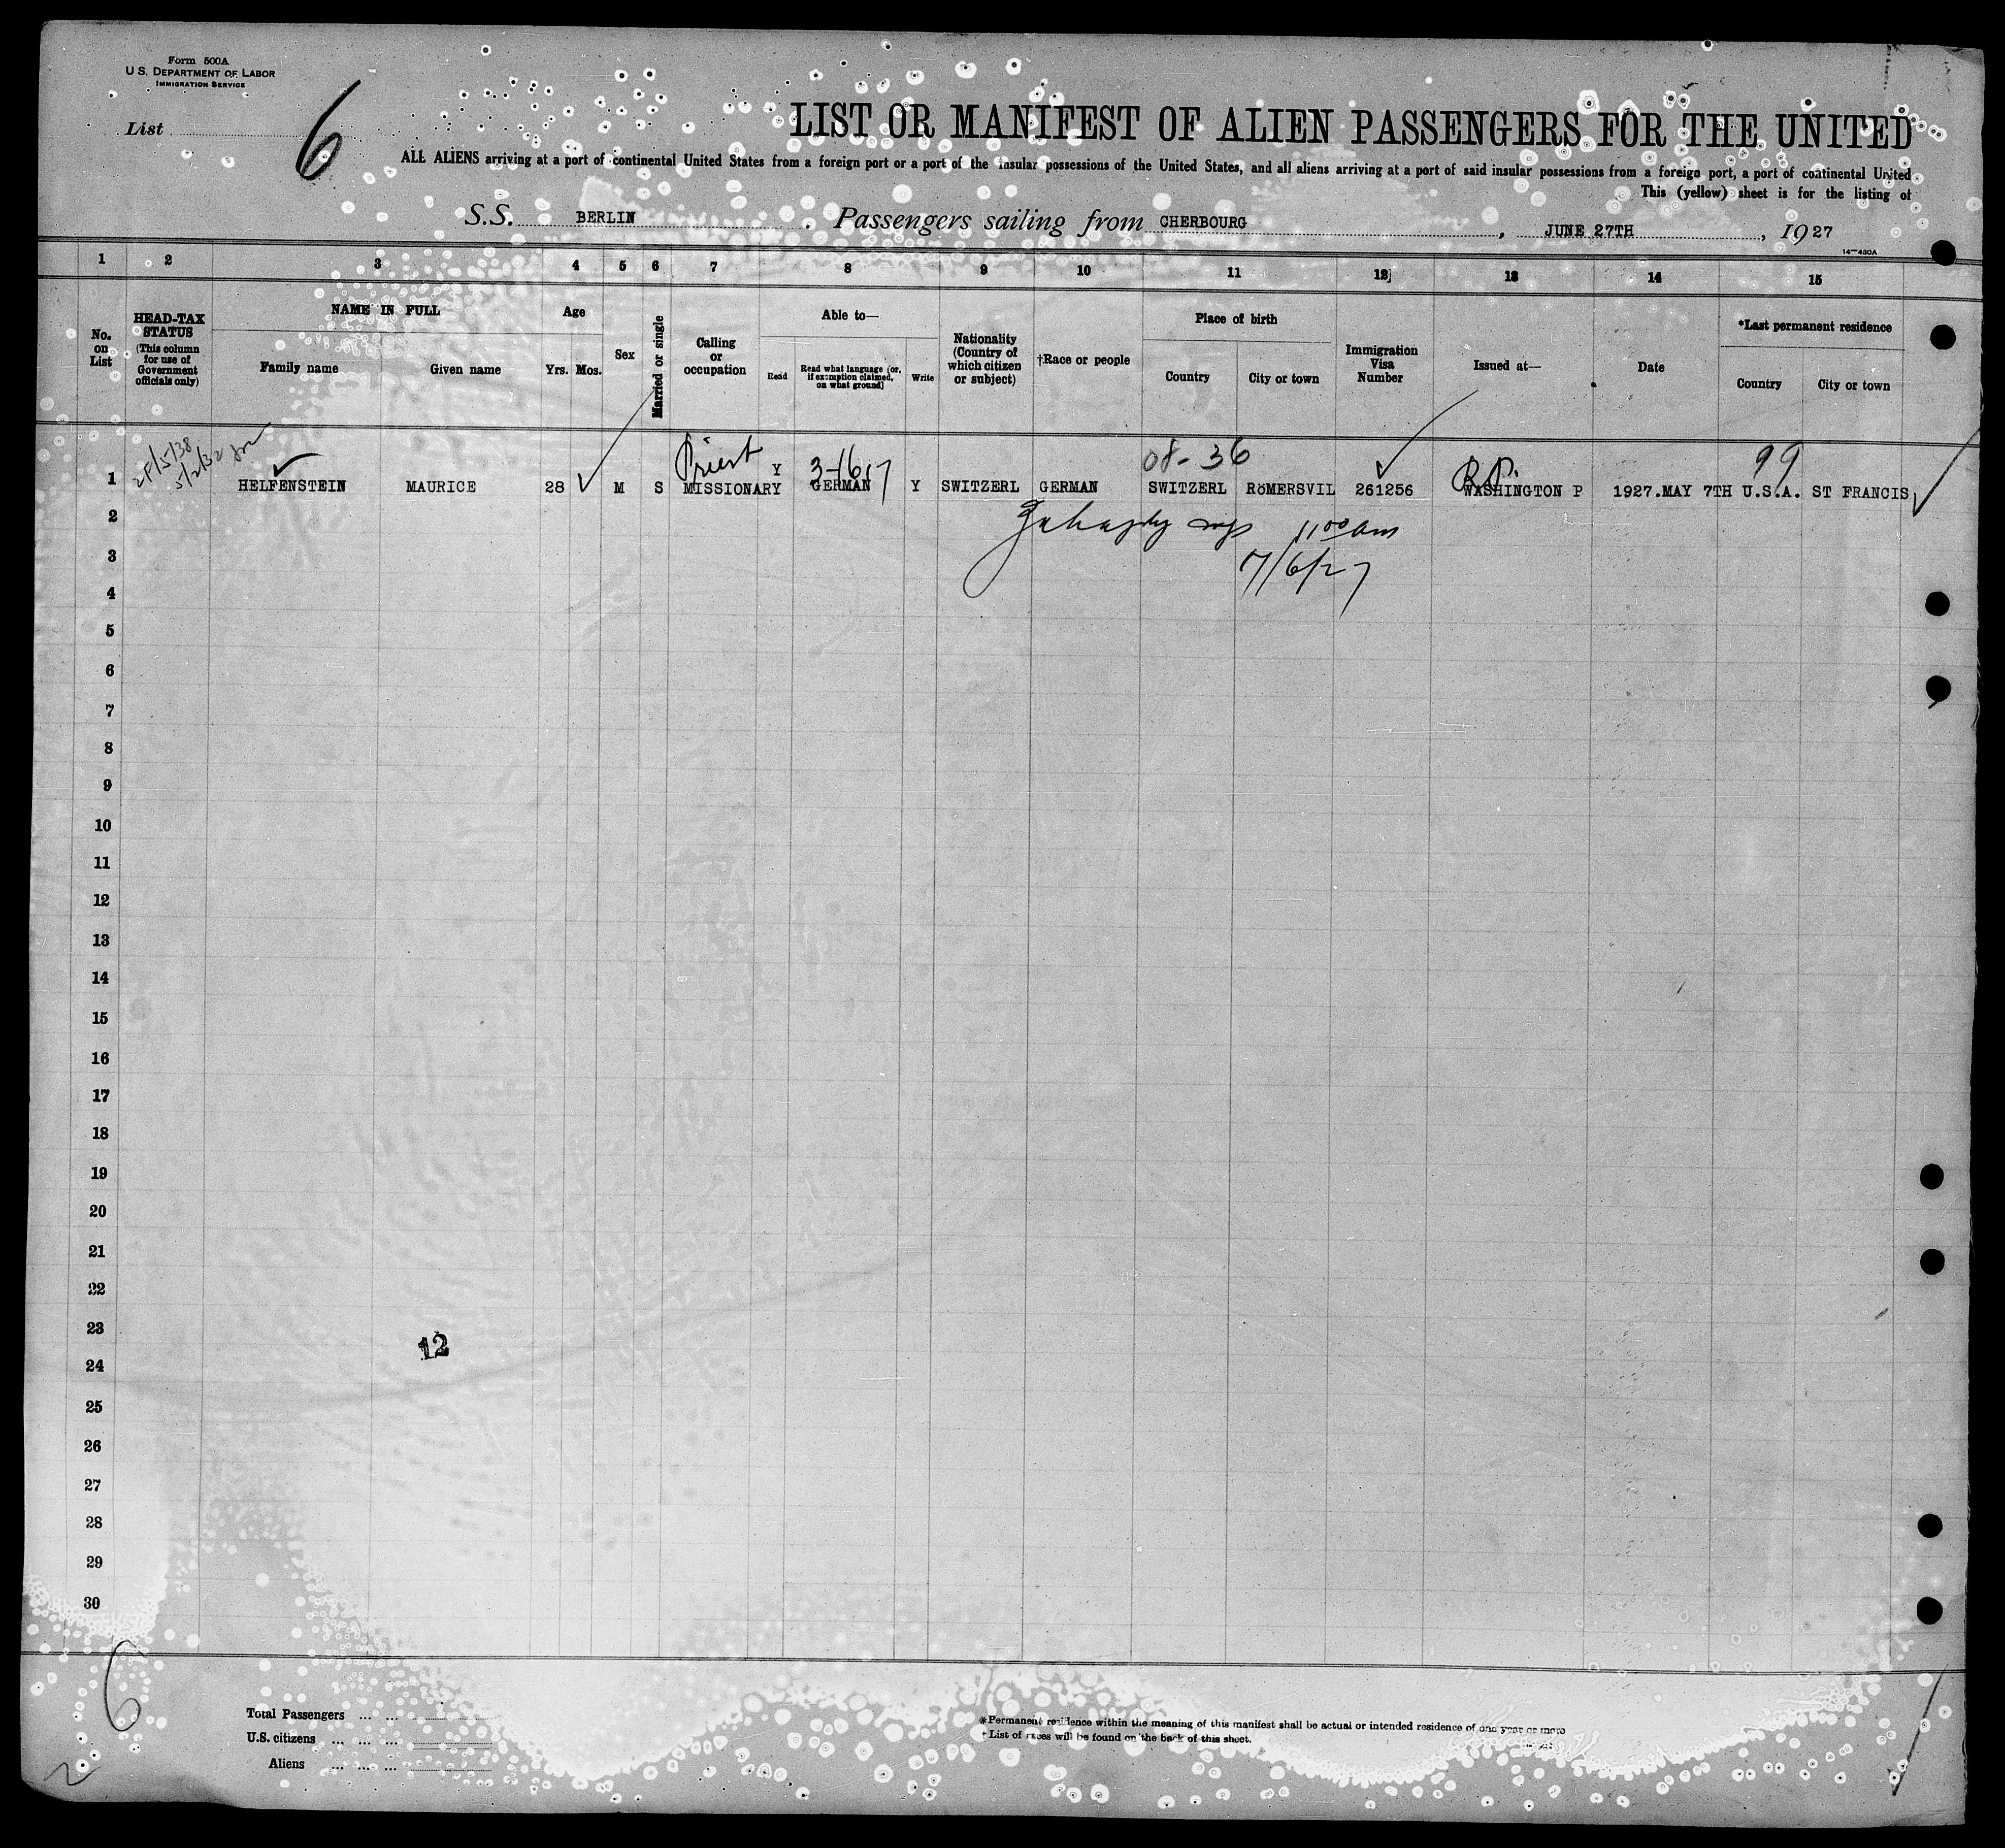 Form 500A
U.S. DEPARTMENT OF LABOR
IMMIGRATION SERVICE
List 6
LIST OR MANIFEST OF ALIEN PASSENGERS FOR THE UNITED
ALL ALIENS arriving at a port of continental United States from a foreign port or a port of the insular possessions of the United States, and all aliens arriving at a port of said insular possessions from a foreign port, a port of continental United
This (yellow) sheet is for the listing of
S.S. BERLIN. Passengers sailing from CHERBOURG, JUNE 27TH, 1927
14—430A
1 2 3 4 5 6 7 8 9 10 11 12 13 14 15
No. on List
HEAD-TAX STATUS
(This column for use of Government officials only)
NAME IN FULL
Family name Given name
Age
Yrs. Mos.
Sex
Married or single
Calling or occupation
Able to—
Read
Read what language (or, if exemption claimed, on what ground)
Write
Nationality (Country of which citizen or subject)
†Race or people
Place of birth
Country City or town
Immigration Visa Number
Issued at—
Date
*Last permanent residence
Country City or town
5/2/32
Priest 3-1617 08-36 R.P. 99
1 HELFENSTEIN MAURICE 28 M S MISSIONARY Y GERMAN Y SWITZERL GERMAN SWITZERL RöMERSVIL 261256 WASHINGTON P 1927.MAY 7TH U.S.A. ST FRANCIS
2
11 00 am
3
7/6/27
4
5
6
7
8
9
10
11
12
13
14
15
16
17
18
19
20
21
22
23
12
24
25
26
27
28
29
30
6
Total Passengers
U.S. citizens
Aliens
*Permanent residence within the meaning of this manifest shall be actual or intended residence of one year or more
†List of races will be found on the back of this sheet.
2